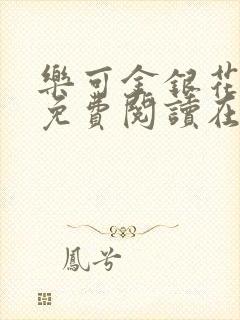 樂可金銀花
免費閱讀在
鳳兮